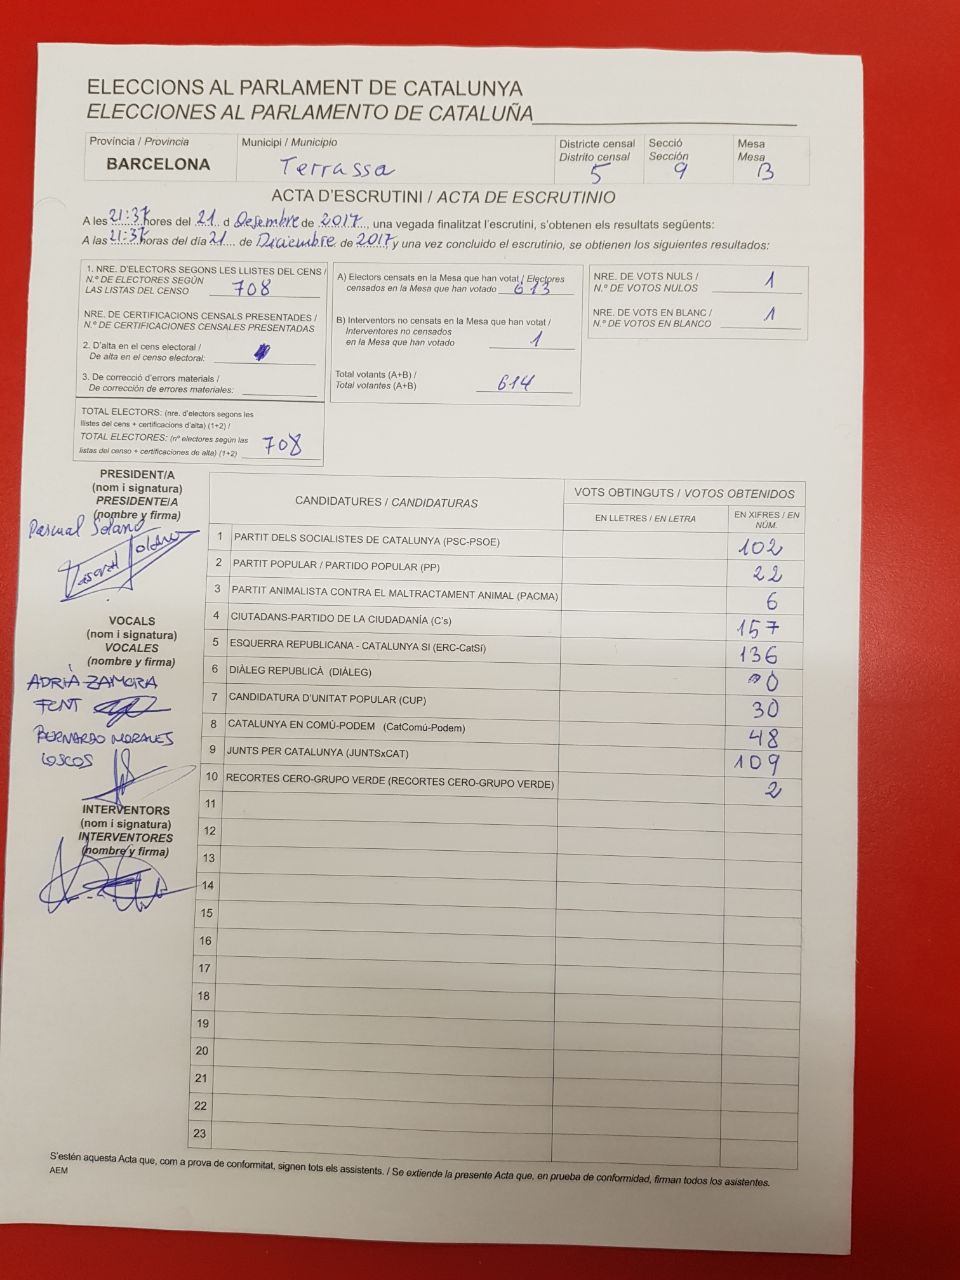 ELECCIONS AL PARLAMENT DE CATALUNYA
ELECCIONES AL PARLAMENTO DE CATALUÑA
Província / Provincia
BARCELONA
Municipi / Municipio
Terrassa
Districte censal
Distrito censal
5
Secció
Sección
9
Mesa
Mesa
B
ACTA D'ESCRUTINI / ACTA DE ESCRUTINIO
A les 21:37 hores del 21 d Desembre de 2017, una vegada finalitzat l'escrutini, s'obtenen els resultats següents:
A las 21:37 horas del día 21 de Diciembre de 2017, y una vez concluido el escrutinio, se obtienen los siguientes resultados:
1. NRE. D'ELECTORS SEGONS LES LLISTES DEL CENS /
N.º DE ELECTORES SEGÚN
LAS LISTAS DEL CENSO 708
NRE. DE CERTIFICACIONS CENSALS PRESENTADES /
N.º DE CERTIFICACIONES CENSALES PRESENTADAS
2. D'alta en el cens electoral /
De alta en el censo electoral:
3. De correcció d'errors materials /
De corrección de errores materiales:
TOTAL ELECTORS: (nre. d'electors segons les
llistes del cens + certificacions d'alta) (1+2) /
TOTAL ELECTORES: (nº electores según las
listas del censo + certificaciones de alta) (1+2) 708
A) Electors censats en la Mesa que han votat / Electores
censados en la Mesa que han votado 613
B) Interventors no censats en la Mesa que han votat /
Interventores no censados
en la Mesa que han votado 1
Total votants (A+B) /
Total votantes (A+B) 614
NRE. DE VOTS NULS /
N.º DE VOTOS NULOS 1
NRE. DE VOTS EN BLANC /
N.º DE VOTOS EN BLANCO 1
PRESIDENT/A
(nom i signatura)
PRESIDENTE/A
(nombre y firma)
Pascual Solano
Pascual Solano
VOCALS
(nom i signatura)
VOCALES
(nombre y firma)
ADRIÀ ZAMORA
FONT
BERNARDO MORALES
COSCOS
INTERVENTORS
(nom i signatura)
INTERVENTORES
(nombre y firma)
CANDIDATURES / CANDIDATURAS
VOTS OBTINGUTS / VOTOS OBTENIDOS
EN LLETRES / EN LETRA
EN XIFRES / EN
NÚM.
1 PARTIT DELS SOCIALISTES DE CATALUNYA (PSC-PSOE) 102
2 PARTIT POPULAR / PARTIDO POPULAR (PP) 22
3 PARTIT ANIMALISTA CONTRA EL MALTRACTAMENT ANIMAL (PACMA) 6
4 CIUTADANS-PARTIDO DE LA CIUDADANÍA (C's) 157
5 ESQUERRA REPUBLICANA - CATALUNYA SI (ERC-CatSí) 136
6 DIÀLEG REPUBLICÀ (DIÀLEG) 0
7 CANDIDATURA D'UNITAT POPULAR (CUP) 30
8 CATALUNYA EN COMÚ-PODEM (CatComú-Podem) 48
9 JUNTS PER CATALUNYA (JUNTSxCAT) 109
10 RECORTES CERO-GRUPO VERDE (RECORTES CERO-GRUPO VERDE) 2
11
12
13
14
15
16
17
18
19
20
21
22
23
S'estén aquesta Acta que, com a prova de conformitat, signen tots els assistents. / Se extiende la presente Acta que, en prueba de conformidad, firman todos los asistentes.
AEM